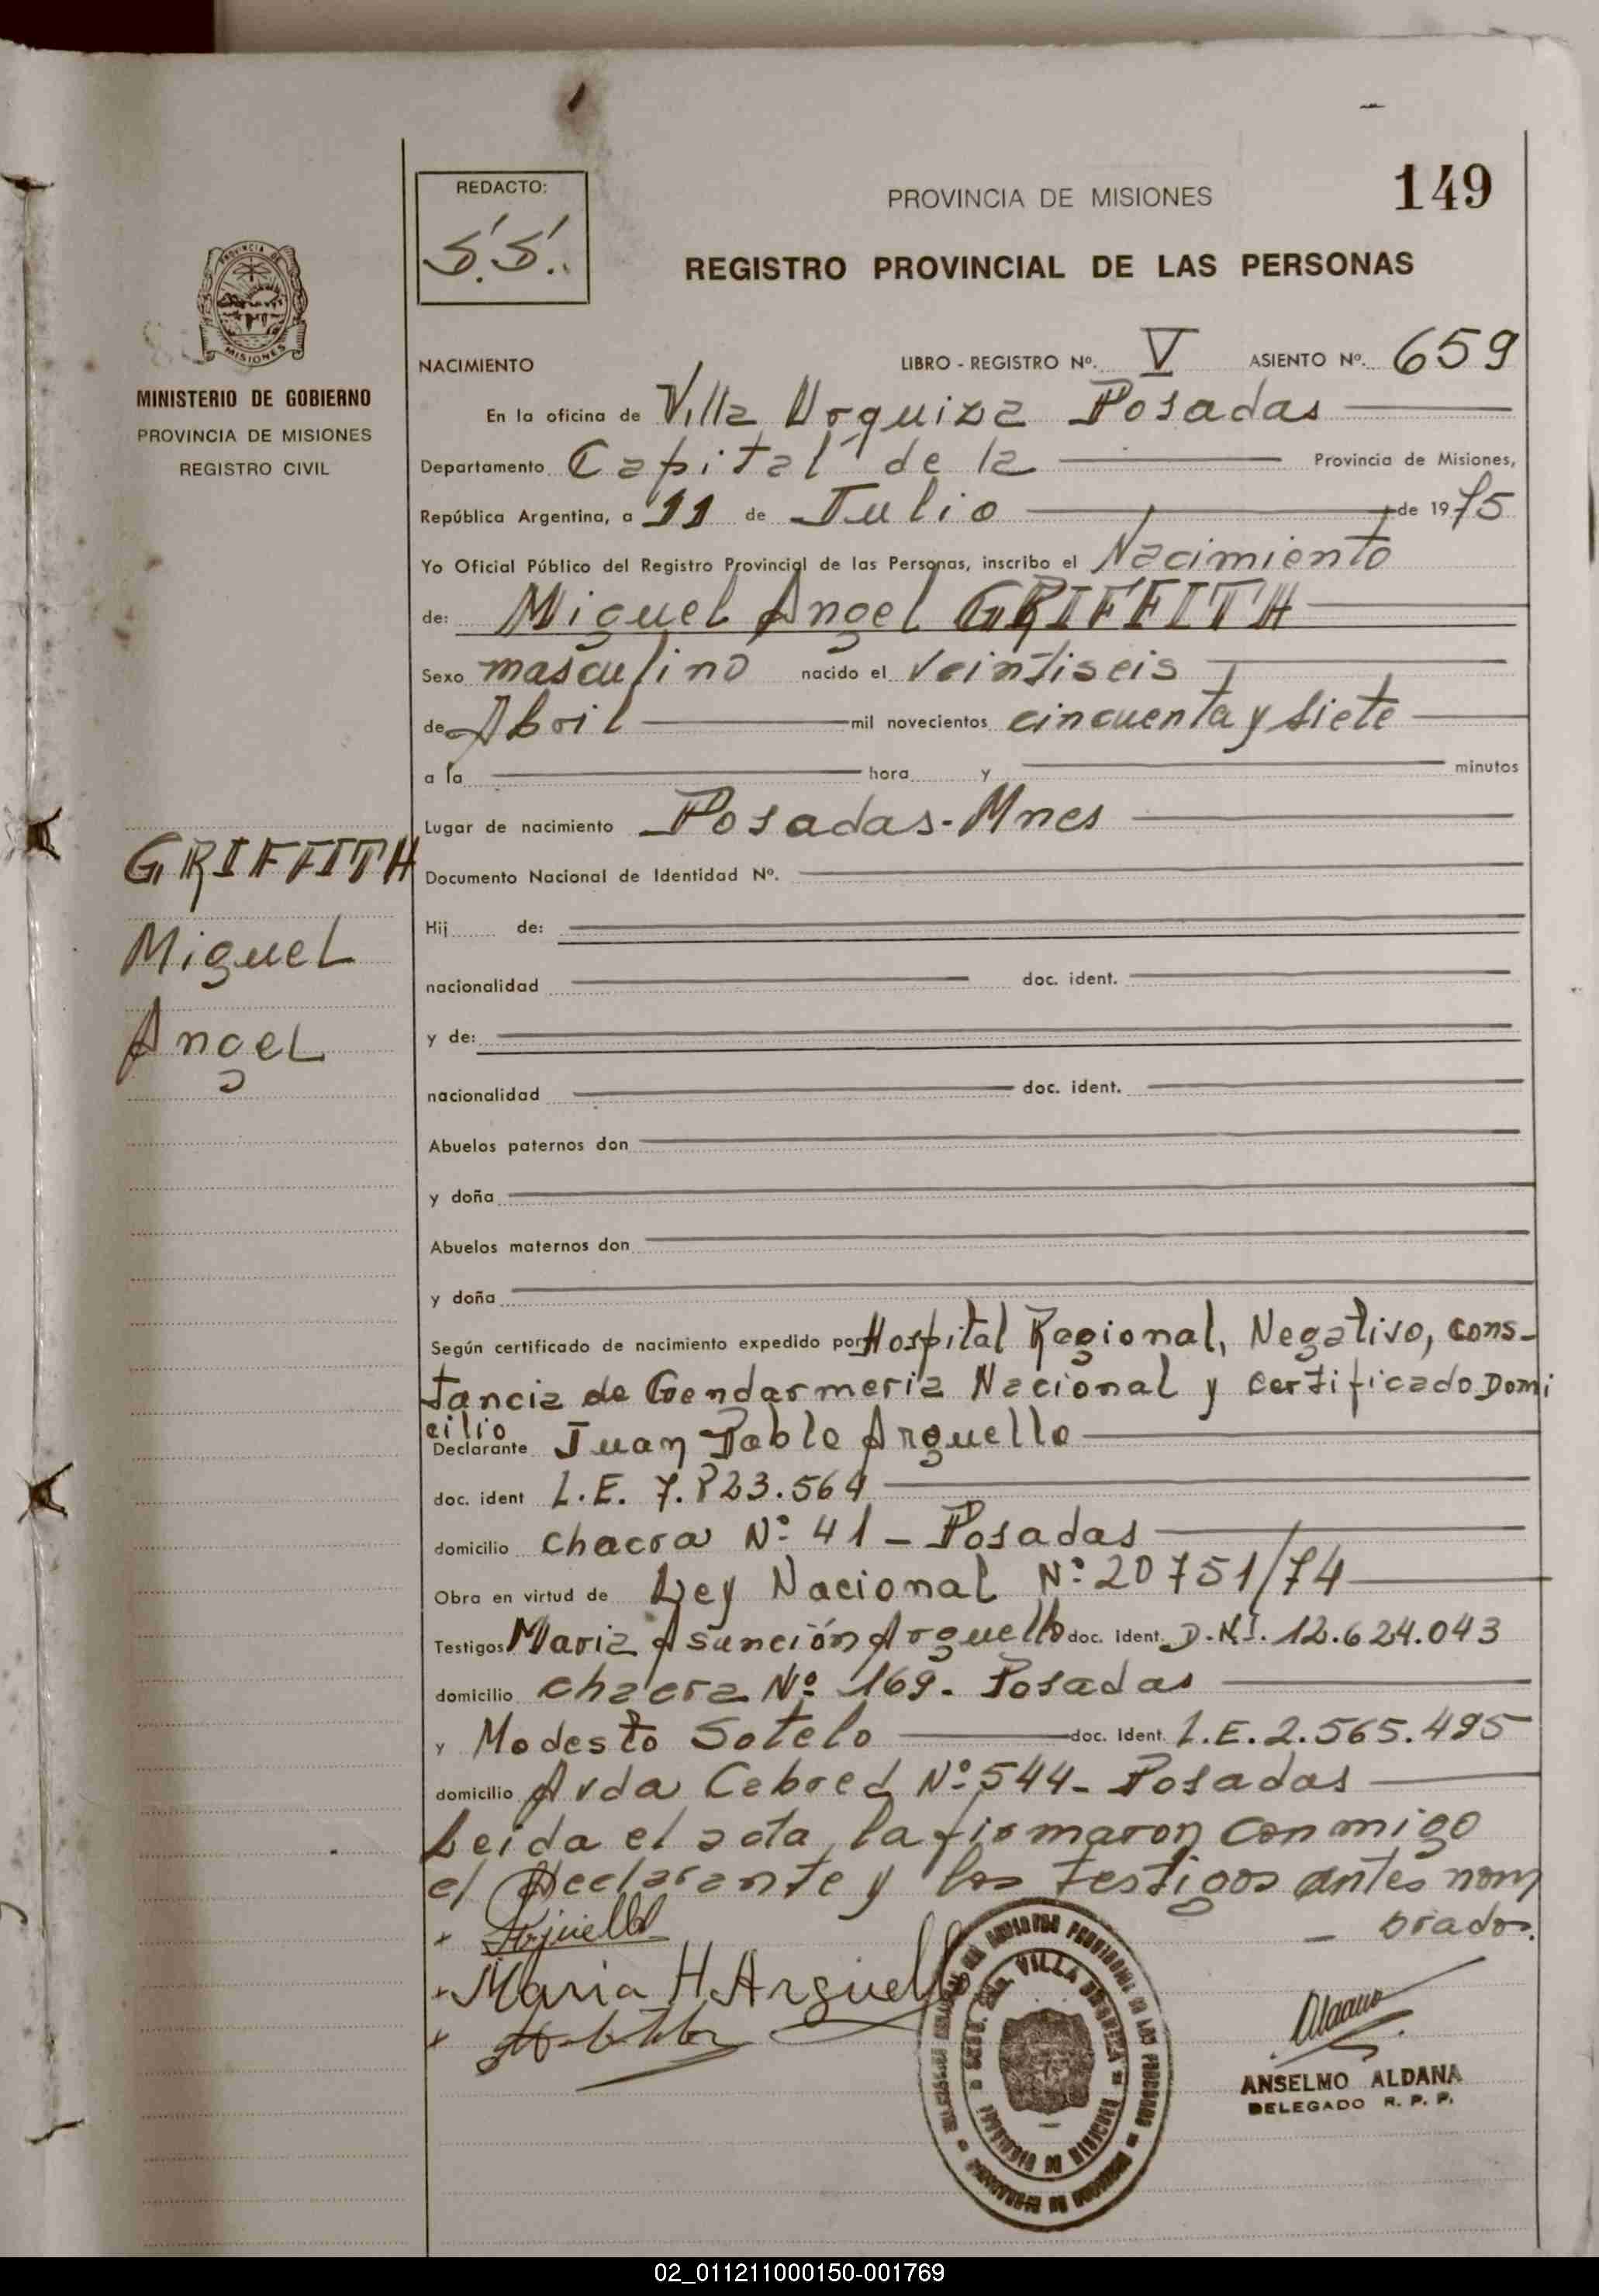 149
REDACTO:
S.S.
PROVINCIA DE MISIONES
REGISTRO PROVINCIAL DE LAS PERSONAS
MINISTERIO DE GOBIERNO
PROVINCIA DE MISIONES
REGISTRO CIVIL
NACIMIENTO LIBRO - REGISTRO Nº. V ASIENTO Nº. 659
En la oficina de Villa Urquiza Posadas
Departamento Capital de la Provincia de Misiones,
República Argentina, a 11 de Julio de 1975
Yo Oficial Público del Registro Provincial de las Personas, inscribo el Nacimiento
de: Miguel Angel GRIFFITH
Sexo masculino nacido el veintiseis
de Abril mil novecientos cincuenta y siete
a la hora y minutos
Lugar de nacimiento Posadas-Mnes
GRIFFITH
Miguel
Angel
Documento Nacional de Identidad Nº.
Hij de:
nacionalidad doc. ident.
y de:
nacionalidad doc. ident.
Abuelos paternos don
y doña
Abuelos maternos don
y doña
Según certificado de nacimiento expedido por Hospital Regional, Negativo, cons-
tancia de Gendarmeria Nacional y certificado Domi
cilio
Declarante Juan Pablo Arguello
doc. ident L.E. 7.823.564
domicilio chacra Nº 41 - Posadas
Obra en virtud de Ley Nacional Nº 20751/74
Testigos Maria Asunción Arguello doc. Ident. D.N.I. 12.624.043
domicilio chacra Nº 169. Posadas
y Modesto Sotelo doc. Ident. L.E. 2.565.495
domicilio Avda Cabred Nº 544- Posadas
Leida el acta, la firmaron conmigo
el Declarante y los testigos antes nom
brados.
Arguello
Maria H Arguello
VILLA URQUIZA
ANSELMO ALDANA
DELEGADO R. P. P.
02_011211000150-001769